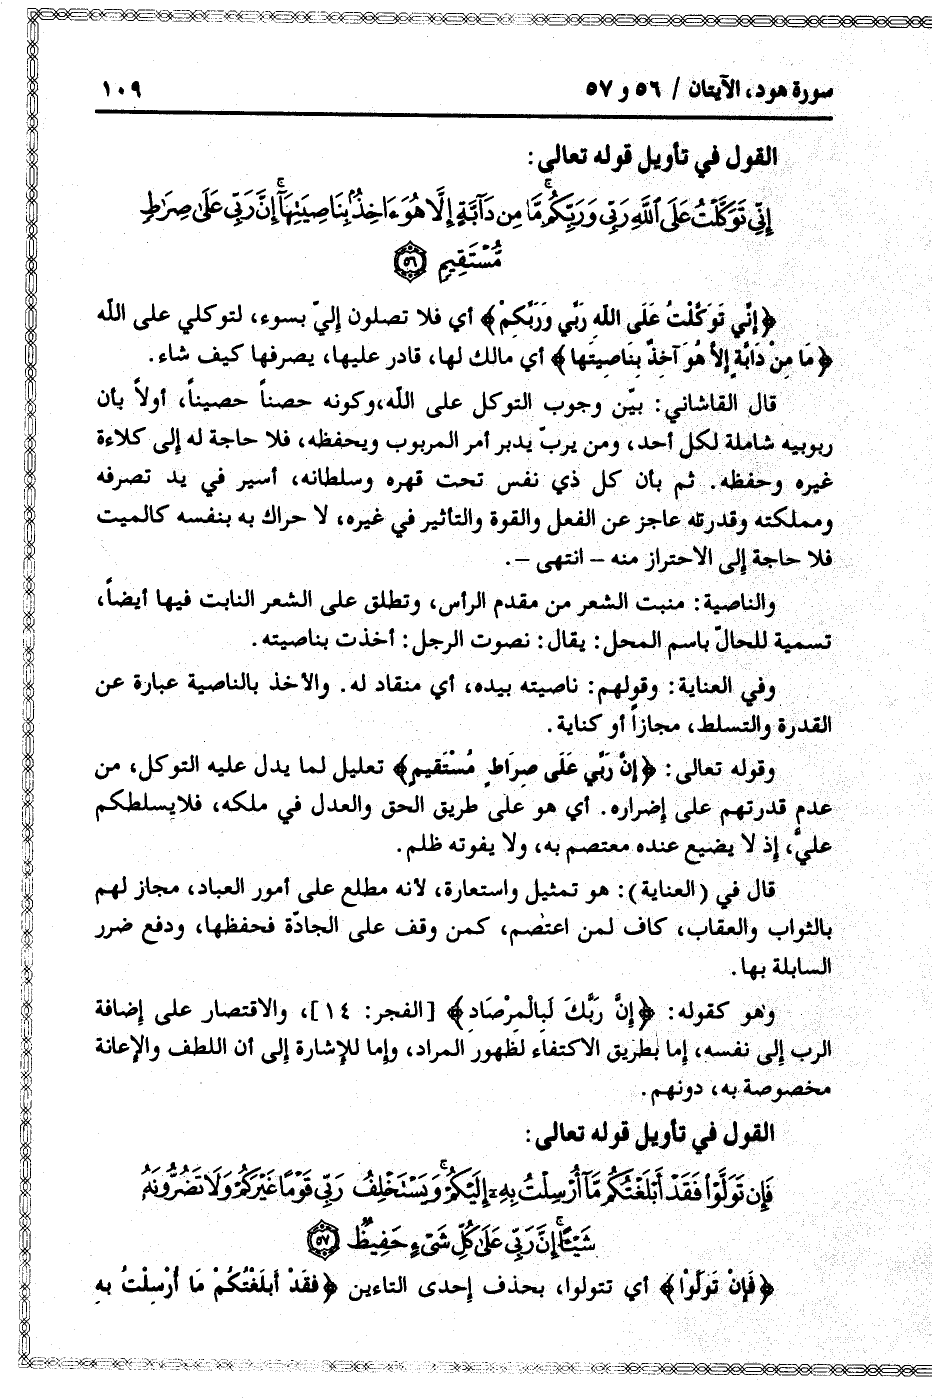 سورة هود، الآيتان / ٥٦ و ٥٧
١٠٩
القول في تأويل قوله تعالى:
إِنِّي تَوَكَّلْتُ عَلَى ٱللَّهِ رَبِّي وَرَبِّكُمۚ مَّا مِن دَآبَّةٍ إِلَّا هُوَ ءَاخِذٌۢ بِنَاصِيَتِهَآۚ إِنَّ رَبِّي عَلَىٰ صِرَٰطٍ
مُّسْتَقِيمٍ ٥٦
﴿إِنِّي تَوَكَّلْتُ عَلَى اللَّهِ رَبِّي وَرَبِّكُمْ﴾ أي فلا تصلون إليّ بسوء، لتوكلي على الله
﴿مَا مِنْ دَابَّةٍ إِلاَّ هُوَ آخِذٌ بِنَاصِيَتِها﴾ أي مالك لها، قادر عليها، يصرفها كيف شاء.
قال القاشاني: بيّن وجوب التوكل على الله،وكونه حصناً حصيناً، أولاً بأن
ربوبيه شاملة لكل أحد، ومن يربّ يدبر أمر المربوب ويحفظه، فلا حاجة له إلى كلاءة
غيره وحفظه. ثم بأن كل ذي نفس تحت قهره وسلطانه، أسير في يد تصرفه
ومملكته وقدرته عاجز عن الفعل والقوة والتأثير في غيره، لا حراك به بنفسه كالميت
فلا حاجة إلى الاحتراز منه – انتهى –.
والناصية: منبت الشعر من مقدم الرأس، وتطلق على الشعر النابت فيها أيضاً،
تسمية للحالّ باسم المحل: يقال: نصوت الرجل: أخذت بناصيته.
وفي العناية: وقولهم: ناصيته بيده، أي منقاد له. والأخذ بالناصية عبارة عن
القدرة والتسلط، مجازاً أو كناية.
وقوله تعالى: ﴿إِنَّ رَبِّي عَلَى صِرَاطٍ مُسْتَقِيمٍ﴾ تعليل لما يدل عليه التوكل، من
عدم قدرتهم على إضراره. أي هو على طريق الحق والعدل في ملكه، فلايسلطكم
عليّ، إذ لا يضيع عنده معتصم به، ولا يفوته ظلم.
قال في (العناية): هو تمثيل واستعارة، لأنه مطلع على أمور العباد، مجاز لهم
بالثواب والعقاب، كاف لمن اعتصم، كمن وقف على الجادّة فحفظها، ودفع ضرر
السابلة بها.
وهو كقوله: ﴿إِنَّ رَبَّكَ لَبِالْمِرْصَادِ﴾ [الفجر: ١٤]، والاقتصار على إضافة
الرب إلى نفسه، إما بطريق الاكتفاء لظهور المراد، وإما للإشارة إلى أن اللطف والإعانة
مخصوصة به، دونهم.
القول في تأويل قوله تعالى:
فَإِن تَوَلَّوْاْ فَقَدْ أَبْلَغْتُكُم مَّآ أُرْسِلْتُ بِهِۦٓ إِلَيْكُمْۚ وَيَسْتَخْلِفُ رَبِّي قَوْمًا غَيْرَكُمْ وَلَا تَضُرُّونَهُۥ
شَيْـًٔاۚ إِنَّ رَبِّي عَلَىٰ كُلِّ شَيْءٍ حَفِيظٌ ٥٧
﴿فَإِنْ تَوَلَّوْا﴾ أي تتولوا، بحذف إحدى التاءين ﴿فَقَدْ أَبْلَغْتُكُمْ مَا أُرْسِلْتُ بِهِ